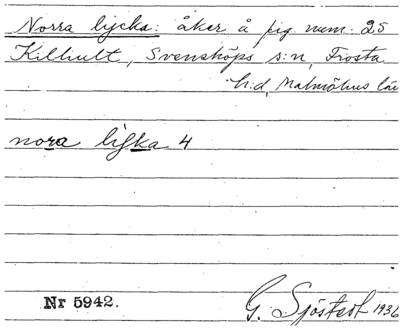 Norra lycka: åker å fig. num. 25
Killhult, Svensköps s:n, Frosta
h:d, Malmöhus län
nora lyka 4
Nr 5942.
G. Sjöstedt 1936